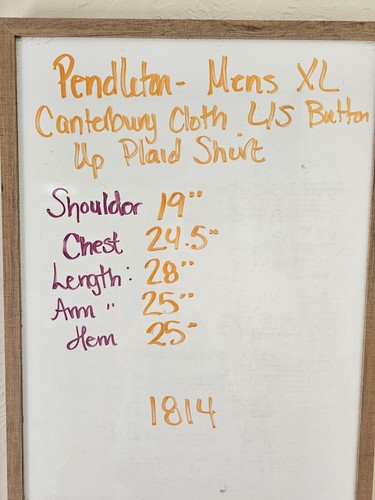 Pendleton- Mens XL
Canterbury Cloth L/S Button
Up Plaid Shirt
Shouldor 19"
Chest 24.5"
Length: 28"
Arm " 25"
Hem 25"
1814